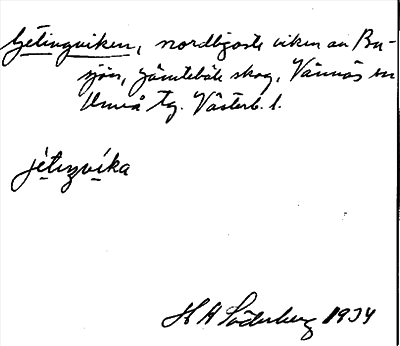 Getingviken, nordligaste viken av Bu-
sjön, Jämtebäle skog, Vännäs sn
Umeå tg. Västerb. l.
jetiŋvika
H A Söderberg 1934